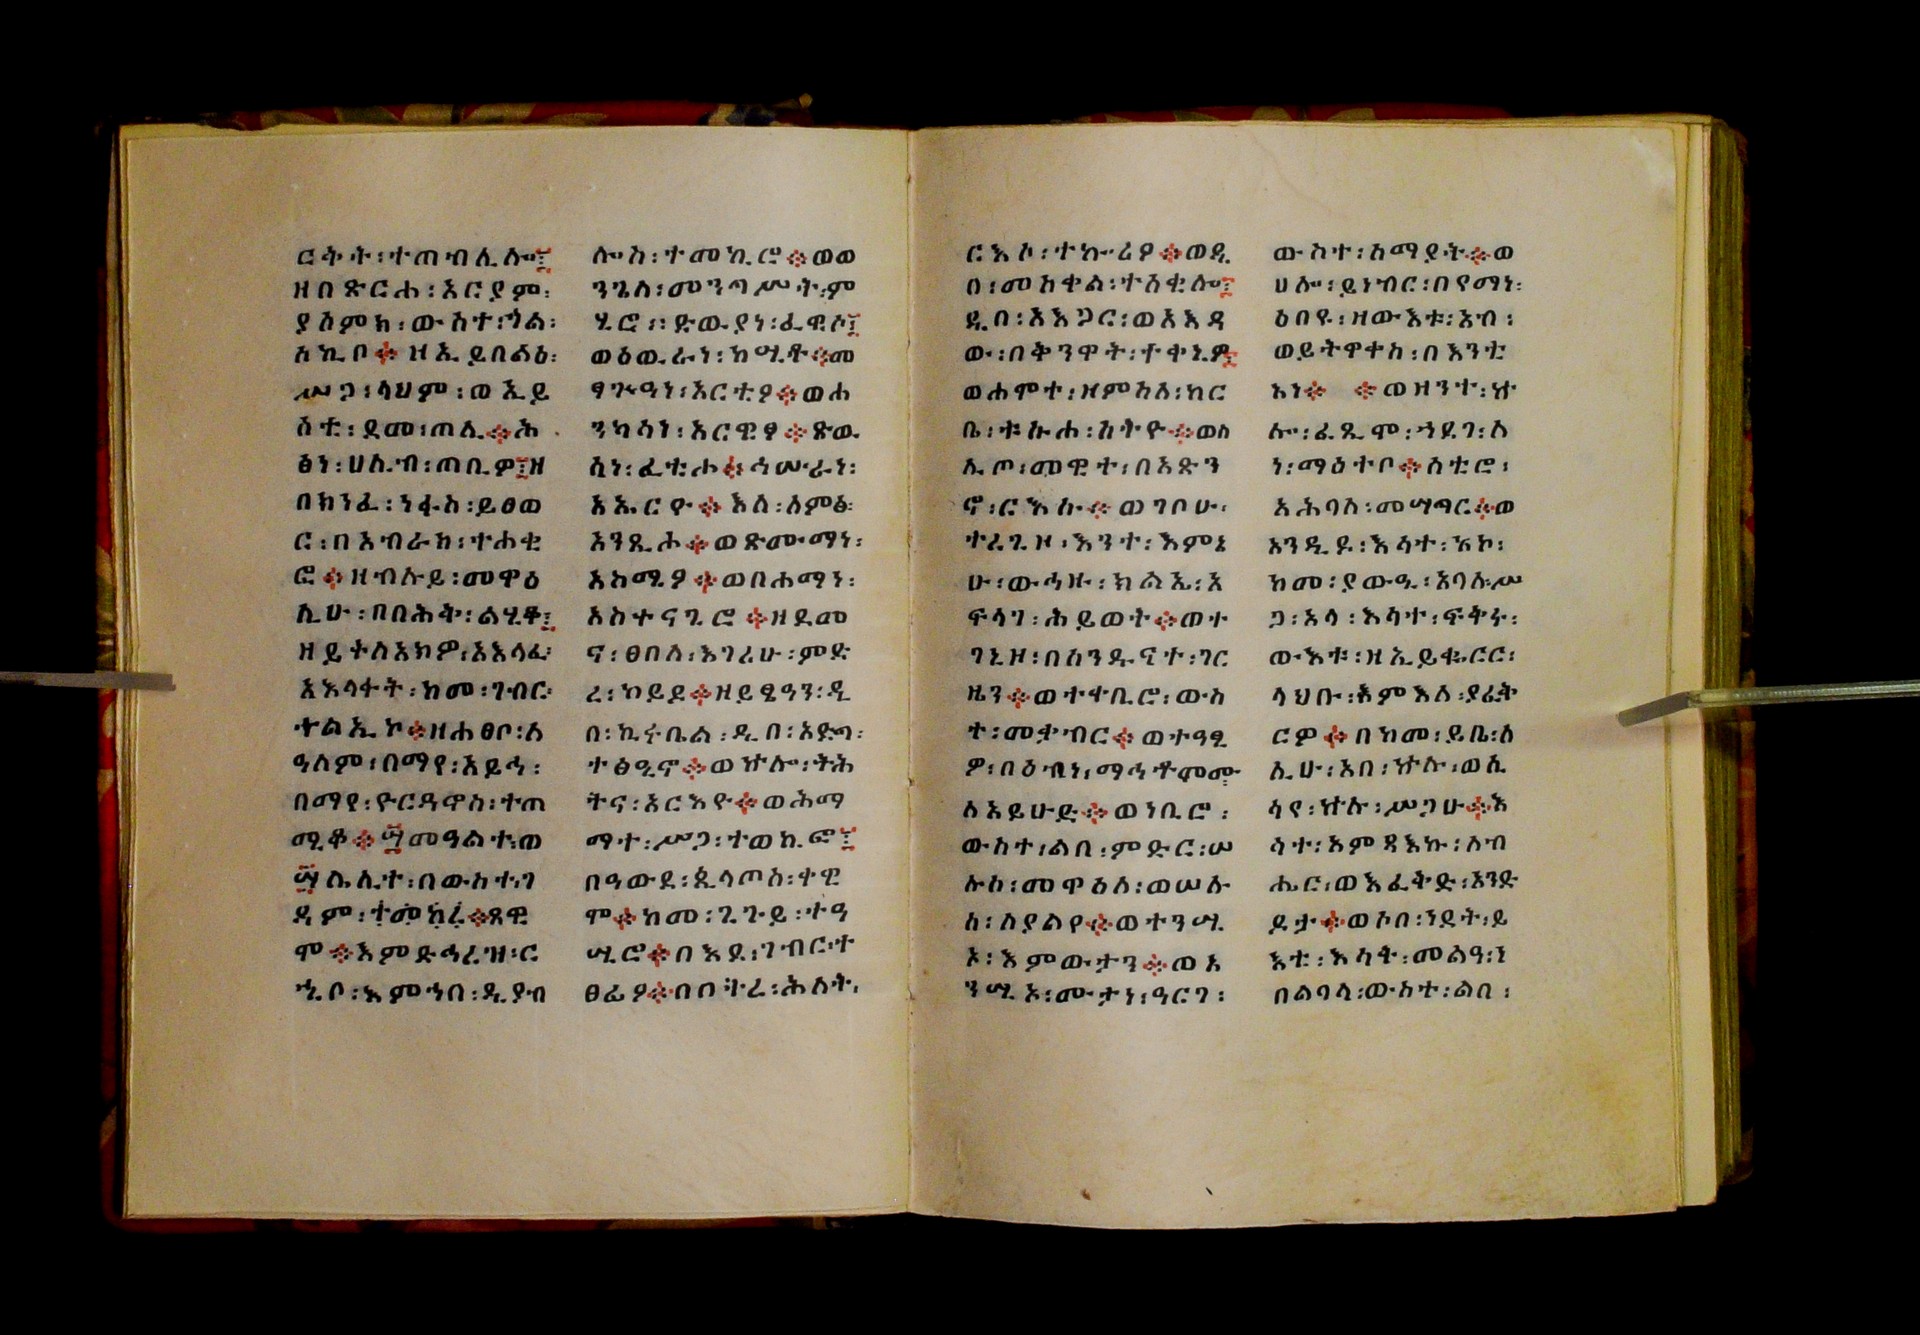 ርቅት፡ተጠብሊሎ፤
ዘበጽርሐ፡አርያም፡
ያሰምክ፡ውስተ፡ጎል፡
ሰኪቦ። ዘኢይበልዕ፡
ሥጋ፡ላህም፡ወኢይ
ሰቲ፡ደመ፡ጠሊ። ሕ
ፅነ፡ሀሊብ፡ጠቢዎ፤ዘ
በክንፈ፡ነፋስ፡ይፀወ
ር፡በአብራክ፡ተሐቂ
ፎ። ዘብሉይ፡መዋዕ
ሊሁ፡በበሕቅ፡ልሂቆ፤
ዘይትለአክዎ፡አእላፈ፡
አእላፋት፡ከመ፡ገብር፡
ተልኢኮ። ዘሐፀቦ፡ለ
ዓለም፡በማየ፡አይኅ፡
በማየ፡ዮርዳዋስ፡ተጠ
ሚቆ። ፵መዓልተ፡ወ
፵ሌሊተ፡በውስተ፡ገ
ዳም፡ተመከረ። ጸዊ
ሞ። እምድኅረዝ፡ር
ኂቦ፡እምኀበ፡ዲያብ
ሎስ፡ተመኪሮ። ወወ
ንጌለ፡መንግሥት፡ም
ሂሮ፡፡ድውያነ፡ፈዊሶ፤
ወዕዉራነ፡ከሢቶ። መ
ፃጕዓነ፡አርትዖ። ወሐ
ንካሳነ፡አርዊፆ። ጽዉ
ሳነ፡ፈቲሖ። ኅሡራነ፡
አእርዮ። እለ፡ለምፅ፡
አንጺሖ። ወጽሙማነ፡
አስሚዖ። ወበሐማነ፡
አስተናጊሮ። ዘደመ
ና፡ፀበለ፡እገሪሁ፡ምድ
ረ፡ኮይደ። ዘይፄዓን፡ዲ
በ፡ኪሩቤል፡ዲበ፡አድግ፡
ተፅዒኖ። ወኵሎ፡ትሕ
ትና፡አርእዮ። ወሕማ
ማተ፡ሥጋ፡ተወኪፎ፤
በዓውደ፡ጲላጦስ፡ቀዊ
ሞ። ከመ፡ጊጉይ፡ተዓ
ሢሮ። በእደ፡ገብር፡ተ
ፀፊዖ። በበትረ፡ሕለት፡
ርእሶ፡ተኵሪዖ። ወዲ
በ፡መስቀል፡ተሰቂሎ፤
ዲበ፡አእጋር፡ወአእዳ
ው፡በቅንዋት፡ተቀኒዎ፤
ወሐሞተ፡ዘምስለ፡ከር
ቤ፡ቱኩሐ፡ሰትዮ። ወለ
ሊጦ፡መዊተ፡በአጽን
ኖ፡ርእሱ። ወገቦሁ፡
ተረጊዞ፡እንተ፡እምኔ
ሁ፡ውኅዙ፡ክልኤ፡አ
ፍላገ፡ሕይወት። ወተ
ገኒዞ፡በሰንዱናት፡ገር
ዜን። ወተቀቢሮ፡ውስ
ተ፡መቃብር። ወተዓፂ
ዎ፡በዕብን፡ማኅቶመሙ
ለአይሁድ። ወነቢሮ፡
ውስተ፡ልበ፡ምድር፡ሠ
ሉስ፡መዋዕለ፡ወሠሉ
ሰ፡ለያልየ። ወተንሢ
ኦ፡እምውታን። ወአ
ንሢኦ፡ሙታነ፡ዓርገ፡
ውስተ፡ሰማያት። ወ
ሀሎ፡ይነብር፡በየማነ፡
ዕበዩ፡ዘውእቱ፡አብ፡
ወይትዋቀስ፡በእንቲ
አነ። ። ወዘንተ፡ኵ
ሎ፡ፈጺሞ፡ኀደገ፡ለ
ነ፡ማዕተቦ። ስቲሮ፡
አሕባለ፡መሣጫር። ወ
አንዲዶ፡እሳተ፡ኸኮ፡
ከመ፡ያውዒ፡አባለ፡ሥ
ጋ፡አላ፡እሳተ፡ፍቅሩ፡
ውእቱ፡ዘኢይቈርር፡
ላህቡ፡እምእለ፡ያፈቅ
ርዎ። በከመ፡ይቤ፡ሰ
ሊሁ፡አበ፡ኵሉ፡ወሊ
ሳየ፡ኵሉ፡ሥጋሁ። እ
ሳተ፡እምጻእኩ፡ለብ
ሔር፡ወእፈቅድ፡እንድ
ደታ። ወሶበ፡ነደት፡ይ
እቲ፡እሳት፡መልዓ፡ነ
በልባላ፡ውስተ፡ልበ፡